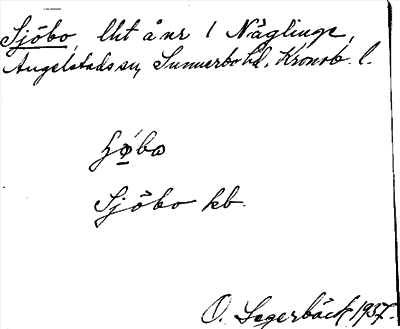 Sjöbo, lht å nr 1 Näglinge,
Angelstads sn, Sunnerbo hd. Kronob. l.
Sjöbo kb.
O. Lagerbäck 1937.